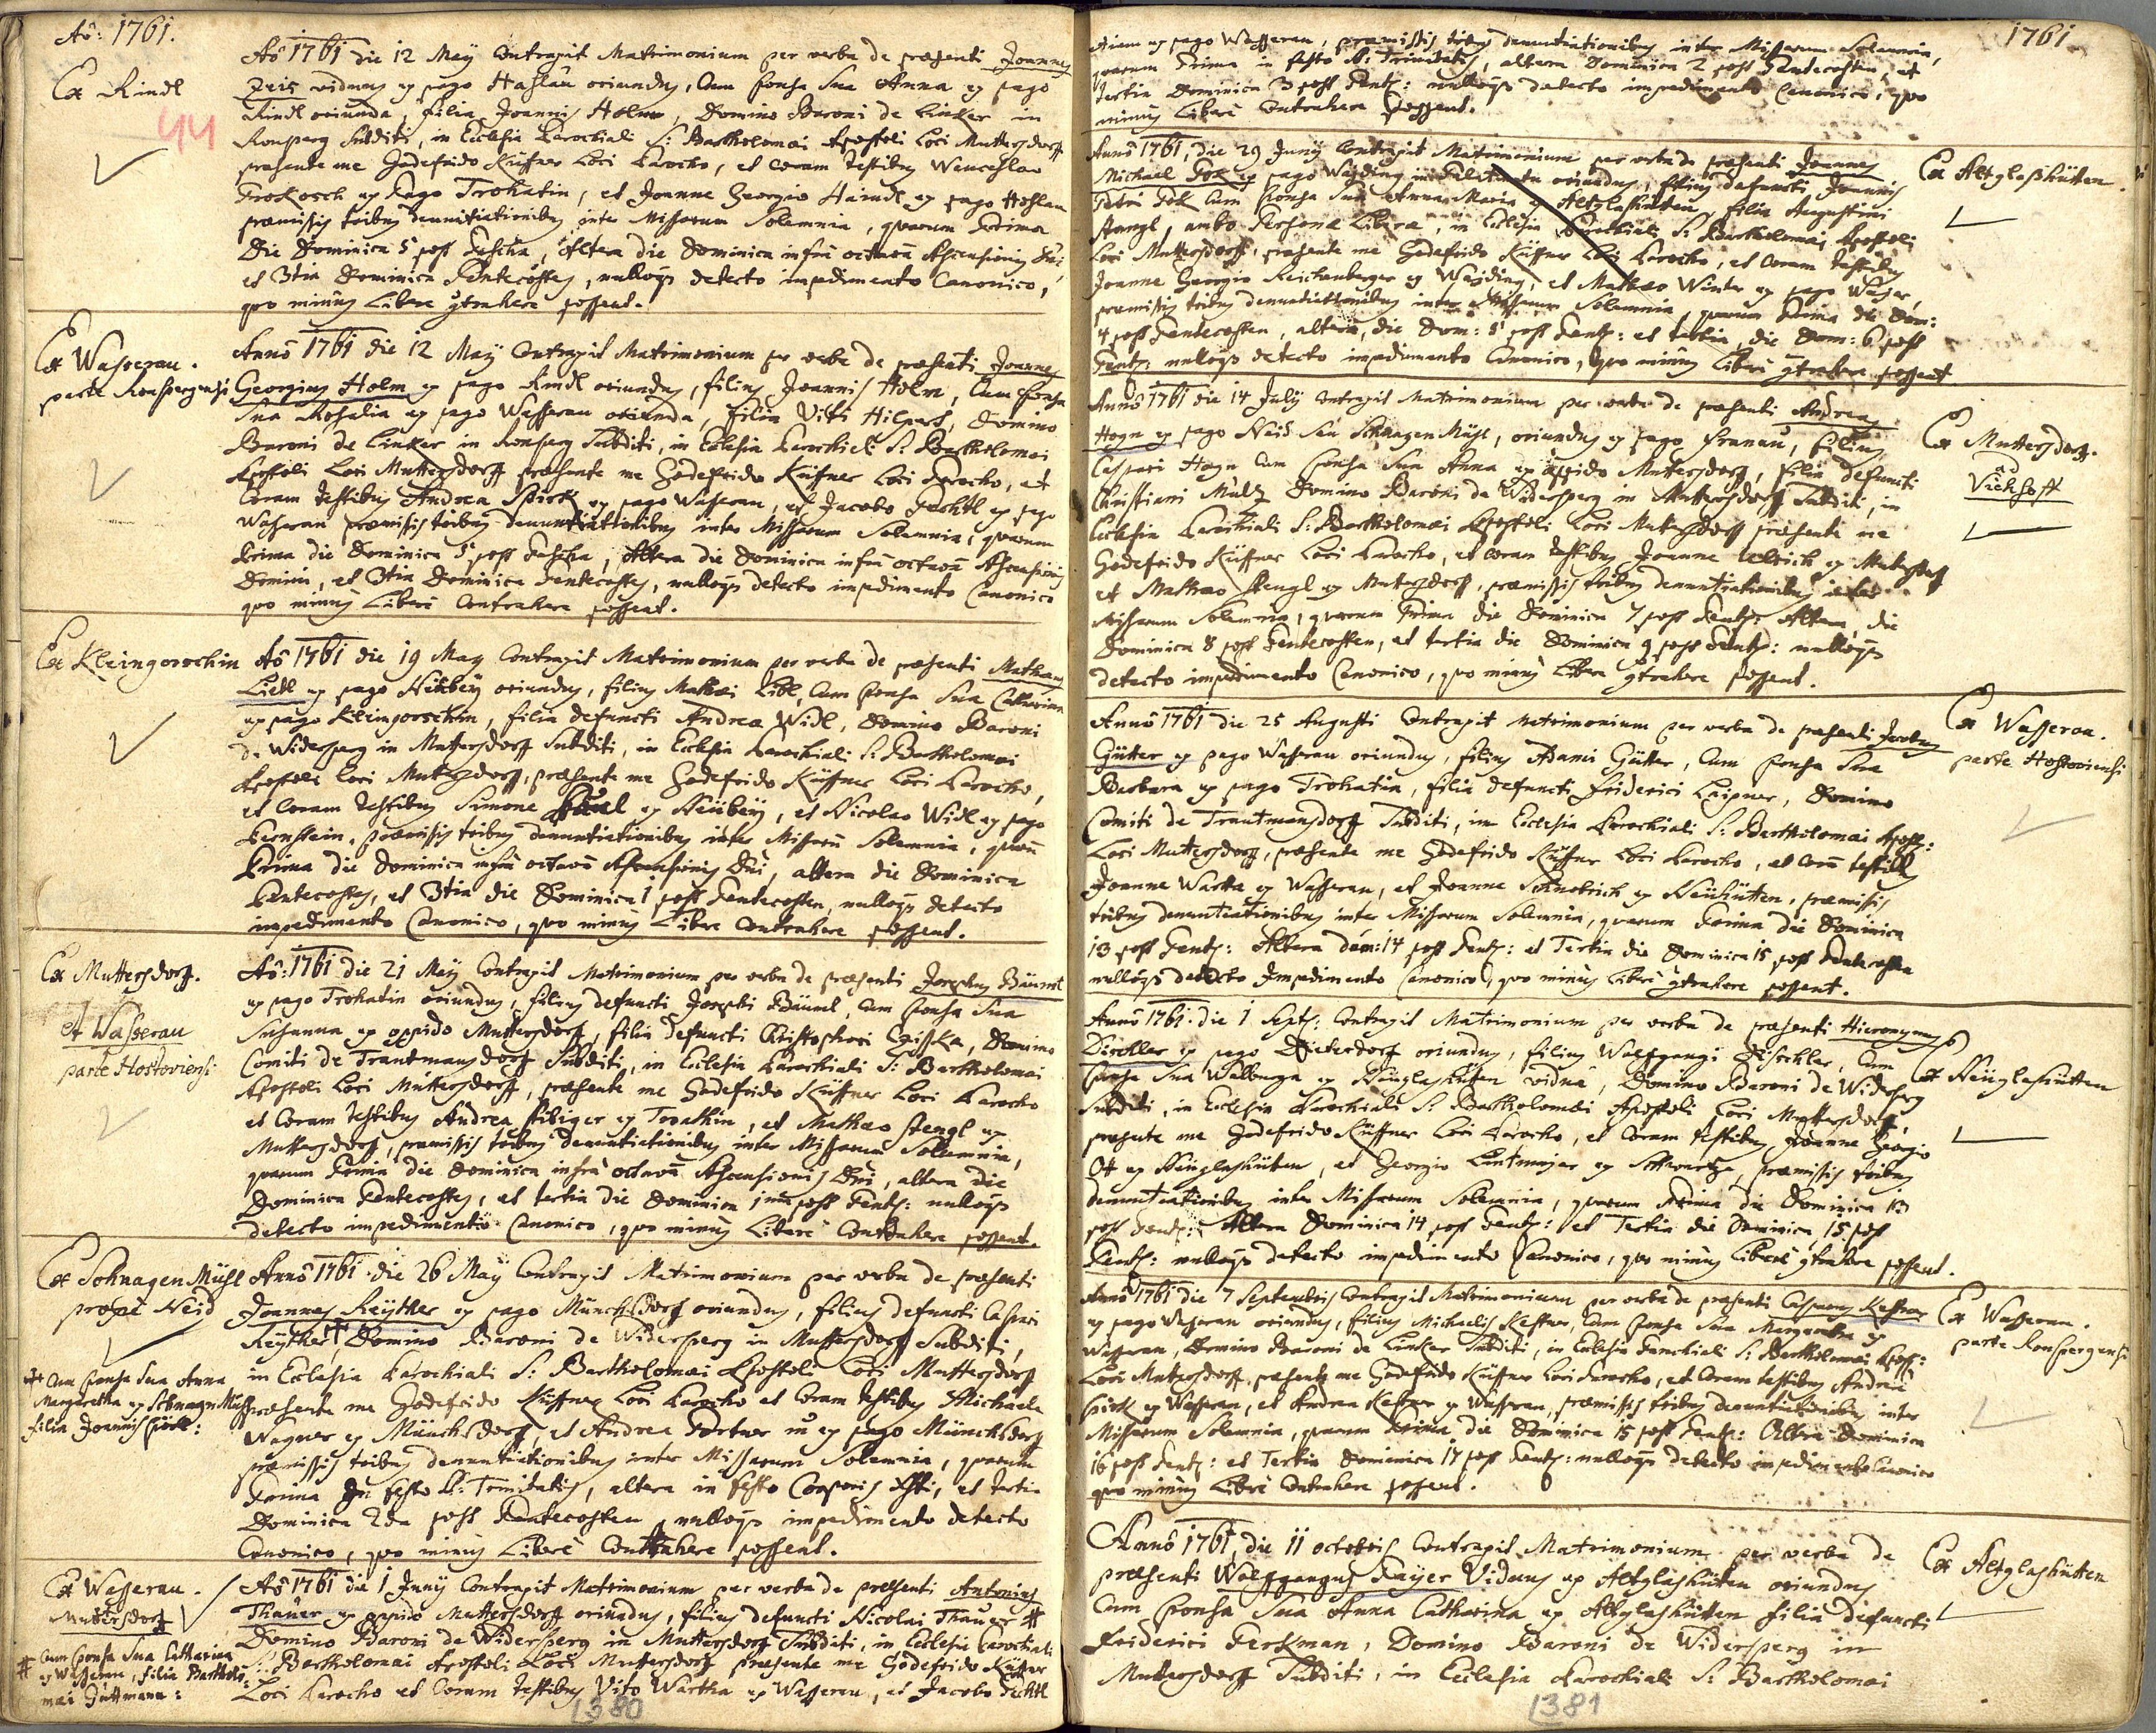 Aõ: 1761.
Ex Rindl
44
Aõ 1761 die 12 May Contraxit Matrimonium per verba de præsenti Joannes
Zeis viduus ex pago Haslau oriundus, Cum sponsa Sua Anna ex pago
Rindl oriunda, filia Joannis Holm, Domino Baroni de Linker in
Ronsperg Subditi, in Ecclesia Parochiali S: Bartholomæi Apostoli Loci Muttersdorff
præsente me Godefrido Küffner Loci Parocho, et Coram testibus Wenceslao
Prokosch ex Pago Trohatin, et Joanne Georgio Haindl ex pago Hoslau
præmissis tribus denuntiationibus inter Missarum Solemnia, quarum Prima
Die Dominica 5 post Pascha, Altera die Dominica infra octavã Ascensionis Dñi
et 3tia Dominica Pentecostes, nulloque detecto impedimento Canonico,
quo minus Libere contrahere possent.
Ex Wasserau.
parte Ronspergensi
Anno 1761 die 12 May Contraxit Matrimonium per verba de præsenti Joannes
Georgius Holm ex pago Rindl oriundus, filius Joannis Holm, Cum sponsa
Sua Rosalia ex pago Wasserau oriunda, filia Viti Hilpert, Domino
Baroni de Linker in Ronsperg Subditi, in Ecclesia Parochiali S: Bartholomæi
Apostoli Loci Muttersdorff præsente me Godefrido Küffner Loci Parocho, et
Coram testibus Andrea Spirk ex pago Wasserau, et Jacobo Pechtl ex pago
Wasserau præmissis tribus denuntiationibus inter Missarum Solemnia, quarum
Prima die Dominica 5 post Pascha, Altera die Dominica infra octavã Ascensionis
Domini, et 3tia Dominica Pentecostes, nulloque detecto impedimento Canonico
quo minus Libere Contrahere possent.
Ex Kleingorschin
Aõ 1761 die 19 May Contraxit Matrimonium per verba de præsenti Mathæus
Liebl ex pago Neübeÿ oriundus, filius Mathæi Libl, Cum sponsa Sua Catharina
ex pago Kleingorschin, filia defuncti Andreæ Widl, Domino Baroni
de Widersperg in Muttersdorff Subditi, in Ecclesia Parochiali S: Bartholomæi
Apostoli Loci Muttersdorff, præsente me Godefrido Küffner Loci Parocho,
et Coram testibus Simone ex Neübeÿ, et Nicolao Widl ex pago
Bernstein, præmissis tribus denuntiationibus inter Missarũ Solemnia, quarũ
Prima die Dominica infra octavã Ascensionis Dñi, altera die Dominica
Pentecostes, et 3tia die Dominica 1 post Pentecosten, nulloque detecto
impedimento Canonico, quo minus Libere Contrahere possent.
Ex Muttersdorff.
et Wasserau
parte Hostoviensi
Aõ: 1761 die 21 May Contraxit Matrimonium per verba de præsenti Josephus Bäuml
ex pago Trohatin oriundus, filius defuncti Josephi Bäuml, Cum sponsa Sua
Susanna ex oppido Muttersdorff, filia defuncti Christophori Czischka, Domino
Comiti de Trautmansdorff Subditi, in Ecclesia Parochiali S: Bartholomæi
Apostoli Loci Muttersdorff, præsente me Godefrido Küffner Loci Parocho
et Coram testibus Andrea Fibiger ex Trohatin, et Mathæo Stengl ex
Muttersdorff, præmissis tribus denuntiationibus inter Missarum Solemnia,
quarum Prima die Dominica infra octavã Ascensionis Dñi, altera die
Dominica Pentecostes, et tertia die Dominica 1ma post Pent: nulloque
detecto impedimento Canonico, quo minus Libere Contrahere possent.
Ex Schnagen Mühl
prope Neid
Anno 1761 die 26 May Contraxit Matrimonium per verba de præsenti
Joannes Reÿther ex pago Münchsdorff oriundus, filius defuncti Caspari
Reÿther, Domino Baroni de Widersperg in Muttersdorff Subditi,
in Ecclesia Parochiali S: Bartholomæi Apostoli Loci Muttersdorff
præsente me Godefrido Küffner Loci Parocho et Coram testibus Michaele
Wagner ex Münchsdorff, et Andrea Portner ex pago Münchsdorff
præmissis tribus denuntiationibus inter Missarum Solemnia, quarum
Prima in festo SS: Trinitatis, altera in festo Corporis Xsti, et tertia
Dominica 2da post Pentecosten, nulloque impedimento detecto
Canonico, quo minus Libere Contrahere possent.
Cum sponsa Sua Anna
Margaretha ex Schnagen Mühl
filia Joannis
Ex Wasserau.
Muttersdorff
Aõ 1761 die 1 Juny Contraxit Matrimonium per verba de præsenti Antonius
Thauer ex oppido Muttersdorff oriundus, filius defuncti Nicolai Thauer #
Domino Baroni de Widersperg in Muttersdorff Subditi, in Ecclesia Parochiali
S: Bartholomæi Apostoli Loci Muttersdorff præsente me Godefrido Küffner
Loci Parocho et Coram testibus Vito Wartha ex Wasserau, et Jacobo Pechtl
# Cum sponsa Sua Catharina
ex Wasserau, filia Bartholo-
mæi Guttmann:
1380
1761
etiam ex pago Wasserau, præmissis tribus denuntiationibus inter Missarum Solemnia,
quarum Prima in festo SS: Trinitatis, altera Dominica 2 post Pentecosten, et
tertia Dominica 3 post Pent: nulloque detecto impedimento Canonico, quo
minus Libere Contrahere possent.
Anno 1761, die 29 Juny Contraxit Matrimonium per verba de præsenti Joannes
Michael Pok ex pago Waÿding in Palatinatu oriundus, filius defuncti Joannis
Petri Pok Cum sponsa Sua Anna Maria ex Altglashütten, filia Augustini
Stangl, ambo Personæ Liberæ, in Ecclesia Parochiali S: Bartholomæi Apostoli
Loci Muttersdorff, præsente me Godefrido Küffner Loci Parocho, et Coram testibus
Joanne Georgio Reichenberger ex Waÿding, et Mathæo Winter ex pago
præmissis tribus denuntiationibus inter Missarum Solemnia, quarum Prima die Dom:
4 post Pentecosten, altera, die Dom: 5 post Pent: et tertia, die Dom: 6 post
Pent: nulloque detecto impedimento Canonico, quo minus Libere contrahere possent
Ex Altglashütten.
Anno 1761 die 14 July Contraxit Matrimonium per verba de præsenti Andreas
Hogn ex pago Neid Seu Schnagen Mühl, oriundus ex pago Franau, filius
Caspari Hogn Cum sponsa Sua Anna ex oppido Muttersdorff, filia defuncti
Christiani Multz Domino Baroni de Widersperg in Muttersdorff Subditi, in
Ecclesia Parochiali S: Bartholomæi Apostoli Loci Muttersdorff præsente me
Godefrido Küffner Loci Parocho, et Coram testibus Joanne Ulrich ex Muttersdorff
et Mathæo Stengl ex Muttersdorff, præmissis tribus denuntiationibus inter
Missarum Solemnia, quarum Prima die Dominica 7 post Pent: Altera, die
Dominica 8 post Pentecosten, et tertia die Dominica 9 post Pent: nulloque
detecto impedimento Canonico, quo minus Libere contrahere possent.
Ex Muttersdorff.
ad
Viehhoff
Anno 1761 die 25 Augusti Contraxit Matrimonium per verba de præsenti Jacobus
Gütter ex pago Wasserau oriundus, filius Adami Gütter, Cum sponsa Sua
Barbara ex pago Trohatin, filia defuncti Friderici Leipner, Domino
Comiti de Trautmansdorff Subditi, in Ecclesia Parochiali S: Bartholomæi Apost:
Loci Muttersdorff, præsente me Godefrido Küffner Loci Parocho, et Corã testibus
Joanne Wartha ex Wasserau, et Joanne Schnobrich ex Neühütten, præmissis
tribus denuntiationibus inter Missarum Solemnia, quarum Prima die Dominica
13 post Pent: Altera dom: 14 post Pent: et Tertia die Dominica 15 post Pentecosten
nulloque detecto Impedimento Canonico, quo minus Libere contrahere possent.
Ex Wasserau.
parte Hostoviensi
Anno 1761. die 1 Sept: Contraxit Matrimonium per verba de præsenti Hieronymus
ex pago Dieterdorf oriundus, filius Wolffgangi, Cum
sponsa Sua Walburga ex Neüglashütten vidua, Domino Baroni de Widersperg
Subditi, in Ecclesia Parochiali S: Bartholomæi Apostoli Loci Muttersdorff,
præsente me Godefrido Küffner Loci Parocho, et Coram testibus Joanne Georgio
Ott ex Neüglashütten, et Georgio ex, præmissis tribus
denuntiationibus inter Missarum Solemnia, quarum Prima die Dominica 13
post Pent: Altera Dominica 14 post Pent: et Tertia die Dominica 15 post
Pent: nulloque detecto impedimento Canonico, quo minus Libere contrahere possent.
Ex Neüglashütten
Anno 1761 die 7 Septembris Contraxit Matrimonium per verba de præsenti Casparus Kastner
ex pago Wasserau oriundus, filius Michaelis Kastner, Cum sponsa Sua Margaretha ex
Wasserau, Domino Baroni de Linker Subditi, in Ecclesia Parochiali S: Bartholomæi Apost:
Loci Muttersdorff præsente me Godefrido Küffner Loci Parocho, et Coram testibus Andrea
Spirk ex Wasserau, et Andrea Kastner ex Wasserau, præmissis tribus denuntiationibus inter
Missarum Solemnia, quarum Prima, die Dominica 15 post Pent: Altera Dominica
16 post Pent: et Tertia Dominica 17 post Pent: nulloque detecto impedimento Canonico
quo minus Libere Contrahere possent.
Ex Wasserau.
parte Ronspergensi
Anno 1761, die 11 octobris Contraxit Matrimonium per verba de
præsenti Wolffgangus Paÿer Viduus ex Altglashütten oriundus
Cum sponsa Sua Anna Catharina ex Altglashütten filia defuncti
Friderici Ferkman, Domino Baroni de Widersperg in
Muttersdorff Subditi, in Ecclesia Parochiali S: Bartholomæi
Ex Altglashütten
1381